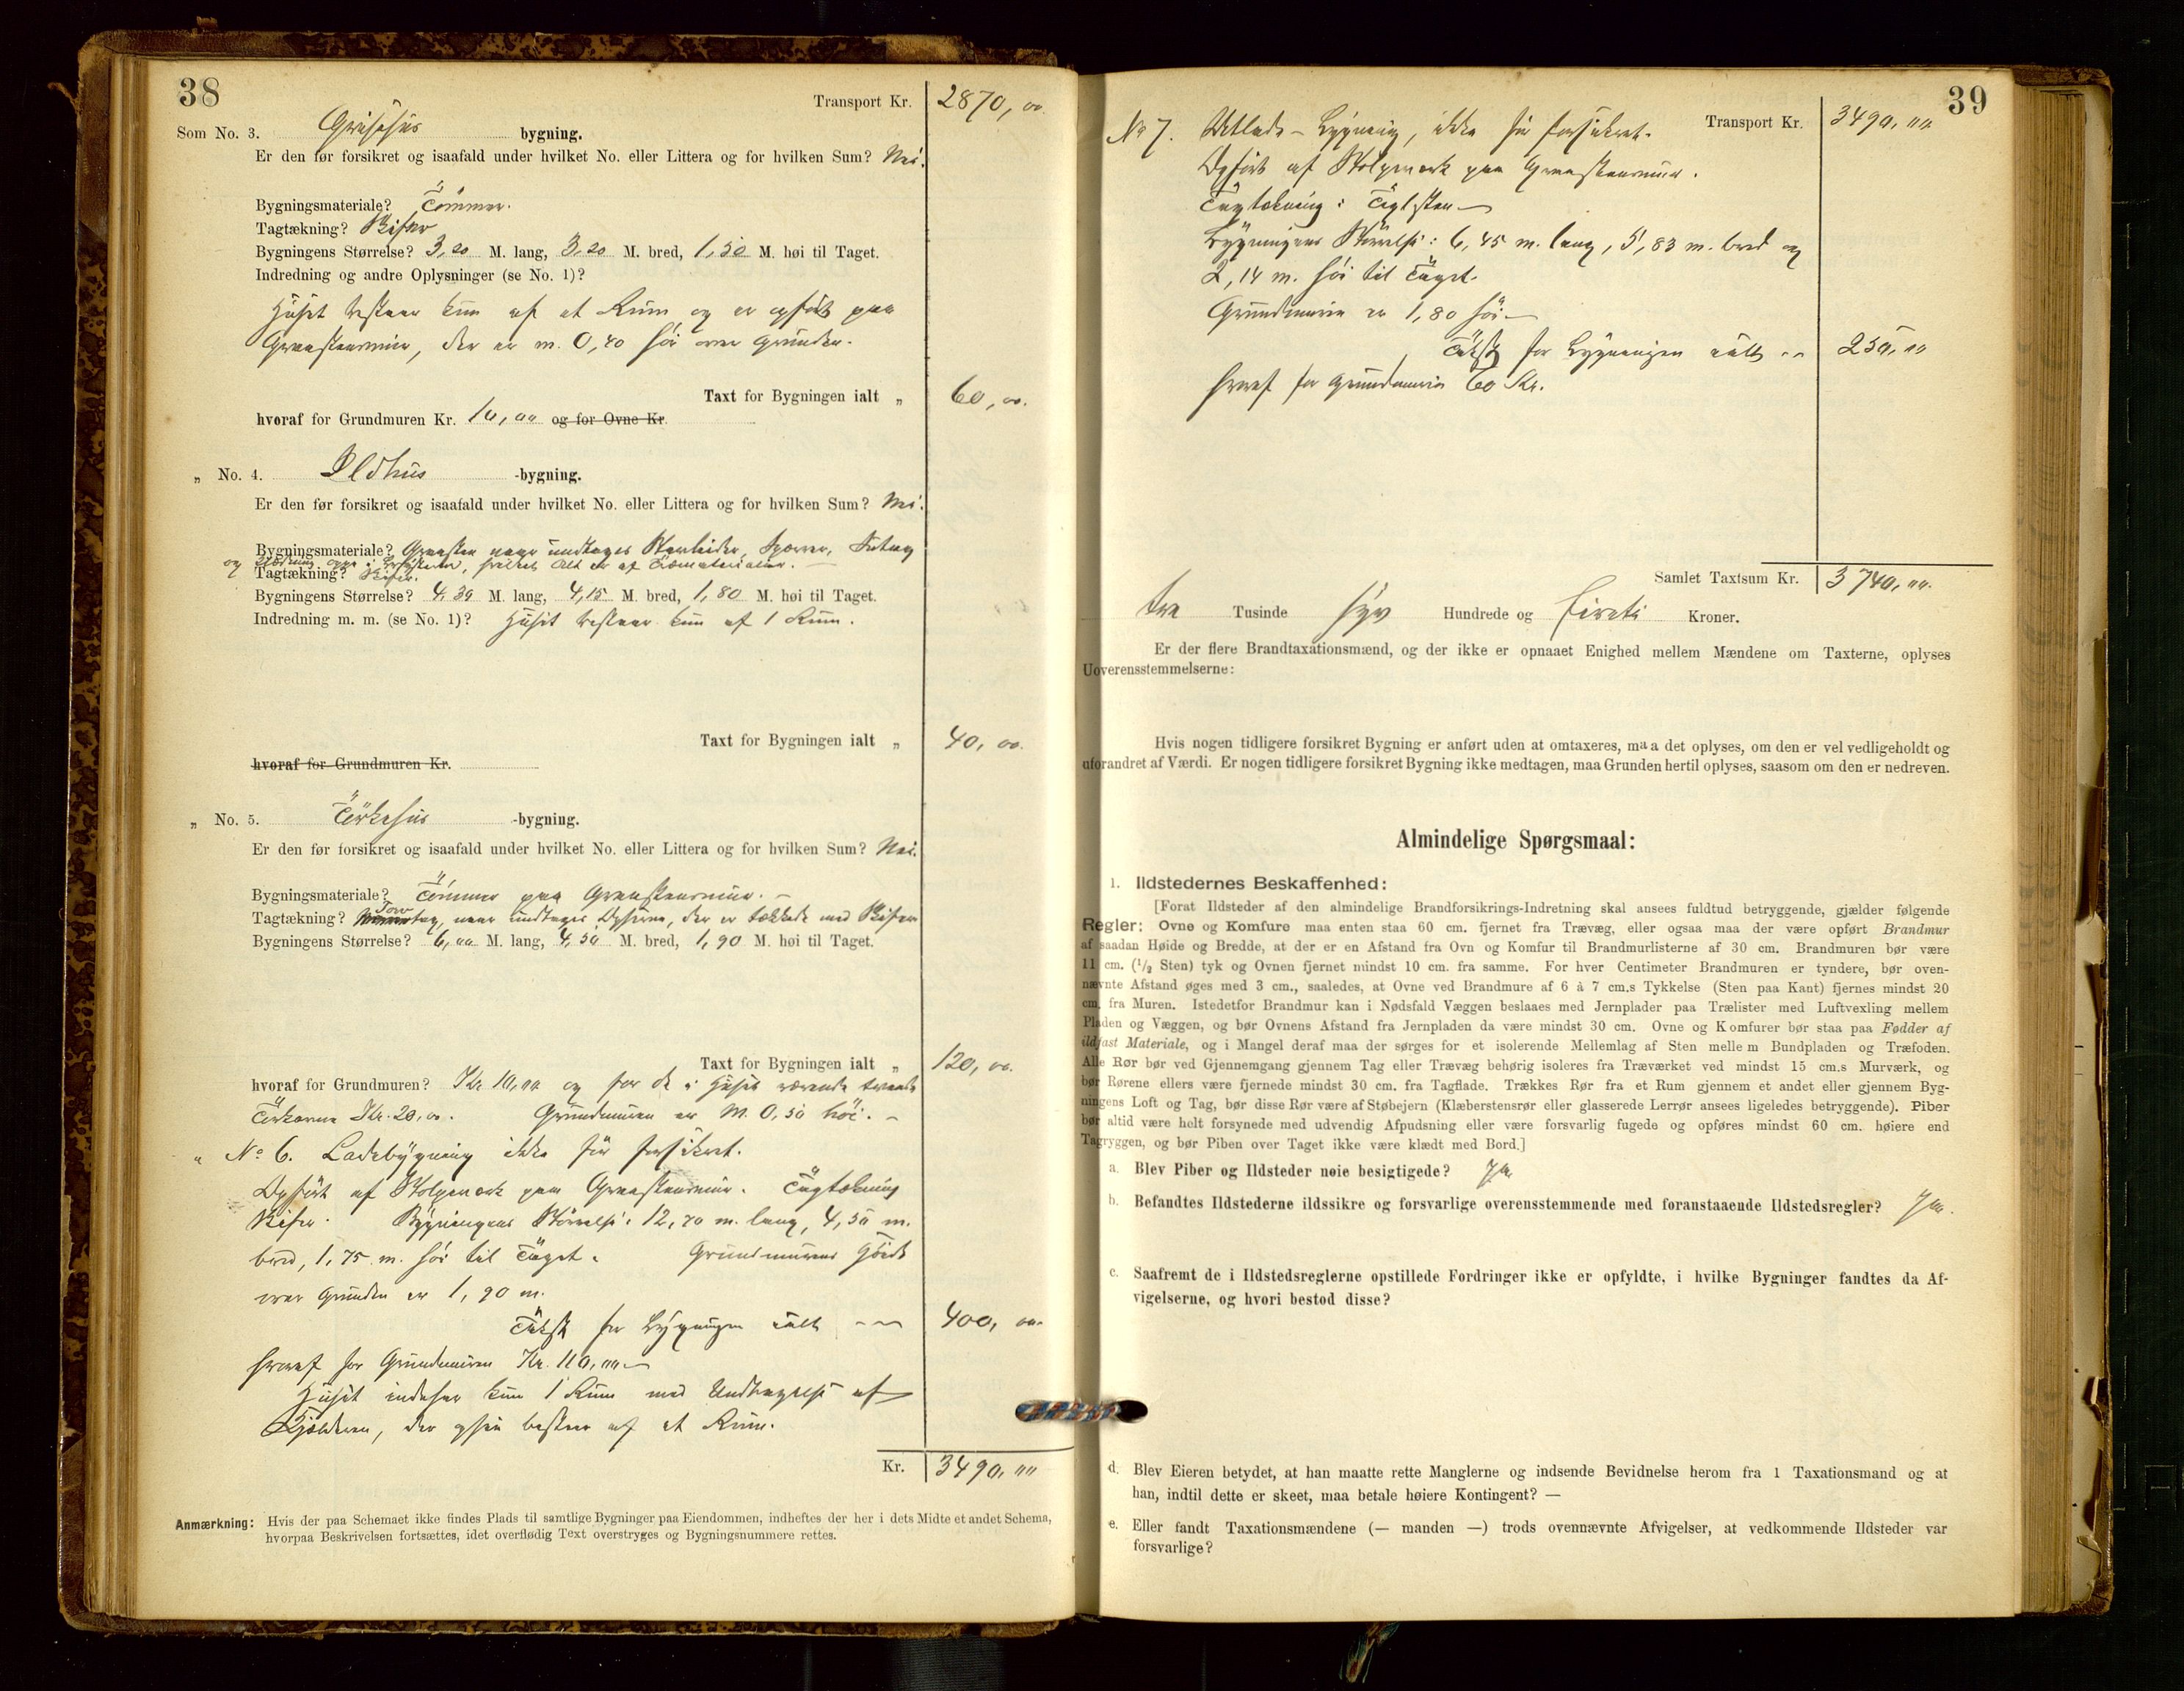 38
Transport Kr. 2870,00.
Som No. 3. Grisehus bygning.
Er den før forsikret og isaafald under hvilket No. eller Littera og for hvilken Sum? Nei.
Bygningsmateriale? Tömmer.
Tagtækning? Skifer
Bygningens Størrelse? 3,20 M. lang, 3,20 M. bred, 1,50 M. høi til Taget.
Indredning og andre Oplysninger (se No. 1)?
Huset bestaar kun af et Rum og er opført paa
Graastensmur, der er m. 0,40 høi over Grunden.
Taxt for Bygningen ialt „ 60,00.
hvoraf for Grundmuren Kr. 10,00 og for Ovne Kr.
„ No. 4. Ildhus -bygning.
Er den før forsikret og isaafald under hvilket No. eller Littera og for hvilken Sum? Nei.
Bygningsmateriale? Graasten naar undtages Sperrer,
og i hvilket Alt er af Træmaterialier.
Tagtækning? Skifer.
Bygningens Størrelse? 4,39 M. lang, 4,15 M. bred, 1,80 M. høi til Taget.
Indredning m. m. (se No. 1)? Huset bestaar kun af 1 Rum.
Taxt for Bygningen ialt „ 40,00.
hvoraf for Grundmuren Kr.
„ No. 5. Törkehus -bygning.
Er den før forsikret og isaafald under hvilket No. eller Littera og for hvilken Sum? Nei.
Bygningsmateriale? Tömmer paa Graastensmur. –
Tagtækning? Torvtag, naar undtages Opserne, der er tækkede med Skifer
Bygningens Størrelse? 6,00 M. lang, 4,50 M. bred, 1,90 M. høi til Taget.
Taxt for Bygningen ialt „ 120,00.
hvoraf for Grundmuren? Kr. 10,00 og for de i Huset værende tvende
Törkovne Kr. 20,00. Grundmuren er M. 0,50 höi. –
„ No 6. Ladebygning ikke før forsikret.
Opført af Stolpeverk paa Graastensmur. Tagtækning
Skifer. Bygningens Størrelse: 12,70 m. lang, 4,50 m.
bred, 1,75 m. høi til Taget. Grundmurens Høide
over Grunden er 1,90 m.
Takst for Bygningen ialt 400,00
hvoraf for Grundmuren Kr. 110,00
Huset indehar kun 1 Rum med Undtagelse af
Kjælderen, der ogsaa bestaar af et Rum.
Kr. 3490,00
Anmærkning: Hvis der paa Schemaet ikke findes Plads til samtlige Bygninger paa Eiendommen, indheftes der her i dets Midte et andet Schema,
hvorpaa Beskrivelsen fortsættes, idet overflødig Text overstryges og Bygningsnummere rettes.
39
Transport Kr. 3490,00
No 7. Utlade-Bygning, ikke før forsikret.
Opført af Stolpeverk paa Graastensmur.
Tagtækning: Taglsten
Bygningens Størrelse: 6,45 m. lang, 5,83 m. bred og
2,14 m. høi til Taget.
Grundmuren er 1,80 høi
Takst for Bygningen ialt 250,00
hvoraf for Grundmuren 60 Kr.
Samlet Taxtsum Kr. 3740,00.
tre Tusinde syv Hundrede og fireti Kroner.
Er der flere Brandtaxationsmænd, og der ikke er opnaaet Enighed mellem Mændene om Taxterne, oplyses
Uoverensstemmelserne:
Hvis nogen tidligere forsikret Bygning er anført uden at omtaxeres, maa det oplyses, om den er vel vedligeholdt og
uforandret af Værdi. Er nogen tidligere forsikret Bygning ikke medtagen, maa Grunden hertil oplyses, saasom om den er nedreven.
Almindelige Spørgsmaal:
1. Ildstedernes Beskaffenhed:
[Forat Ildsteder af den almindelige Brandforsikrings-Indretning skal ansees fuldtud betryggende, gjælder følgende
Regler: Ovne og Komfure maa enten staa 60 cm. fjernet fra Trævæg, eller ogsaa maa der være opført Brandmur
af saadan Høide og Bredde, at der er en Afstand fra Ovn og Komfur til Brandmurlisterne af 30 cm. Brandmuren bør være
11 cm. (1/2 Sten) tyk og Ovnen fjernet mindst 10 cm. fra samme. For hver Centimeter Brandmuren er tyndere, bør oven-
nævnte Afstand øges med 3 cm., saaledes, at Ovne ved Brandmure af 6 à 7 cm.s Tykkelse (Sten paa Kant) fjernes mindst 20
cm. fra Muren. Istedetfor Brandmur kan i Nødsfald Væggen beslaaes med Jernplader paa Trælister med Luftvexling mellem
Pladen og Væggen, og bør Ovnens Afstand fra Jernpladen da være mindst 30 cm. Ovne og Komfurer bør staa paa Fødder af
ildfast Materiale, og i Mangel deraf maa der sørges for et isolerende Mellemlag af Sten mellem Bundpladen og Træfoden.
Alle Rør bør ved Gjennemgang gjennem Tag eller Trævæg behørig isoleres fra Træværket ved mindst 15 cm.s Murværk, og
bør Rørene ellers være fjernede mindst 30 cm. fra Tagflade. Trækkes Rør fra et Rum gjennem et andet eller gjennem Byg-
ningens Loft og Tag, bør disse Rør være af Støbejern (Klæberstensrør eller glasserede Lerrør ansees ligeledes betryggende). Piber
bør altid være helt forsynede med udvendig Afpudsning eller være forsvarlig fugede og opføres mindst 60 cm. høiere end
Tagryggen, og bør Piben over Taget ikke være klædt med Bord.]
a. Blev Piber og Ildsteder nøie besigtigede? Ja
b. Befandtes Ildstederne ildssikre og forsvarlige overensstemmende med foranstaaende Ildstedsregler? Ja.
c. Saafremt de i Ildstedsreglerne opstillede Fordringer ikke er opfyldte, i hvilke Bygninger fandtes da Af-
vigelserne, og hvori bestod disse?
d. Blev Eieren betydet, at han maatte rette Manglerne og indsende Bevidnelse herom fra 1 Taxationsmand og at
han, indtil dette er skeet, maa betale høiere Kontingent? —
e. Eller fandt Taxationsmændene (— manden —) trods ovennævnte Afvigelser, at vedkommende Ildsteder var
forsvarlige?